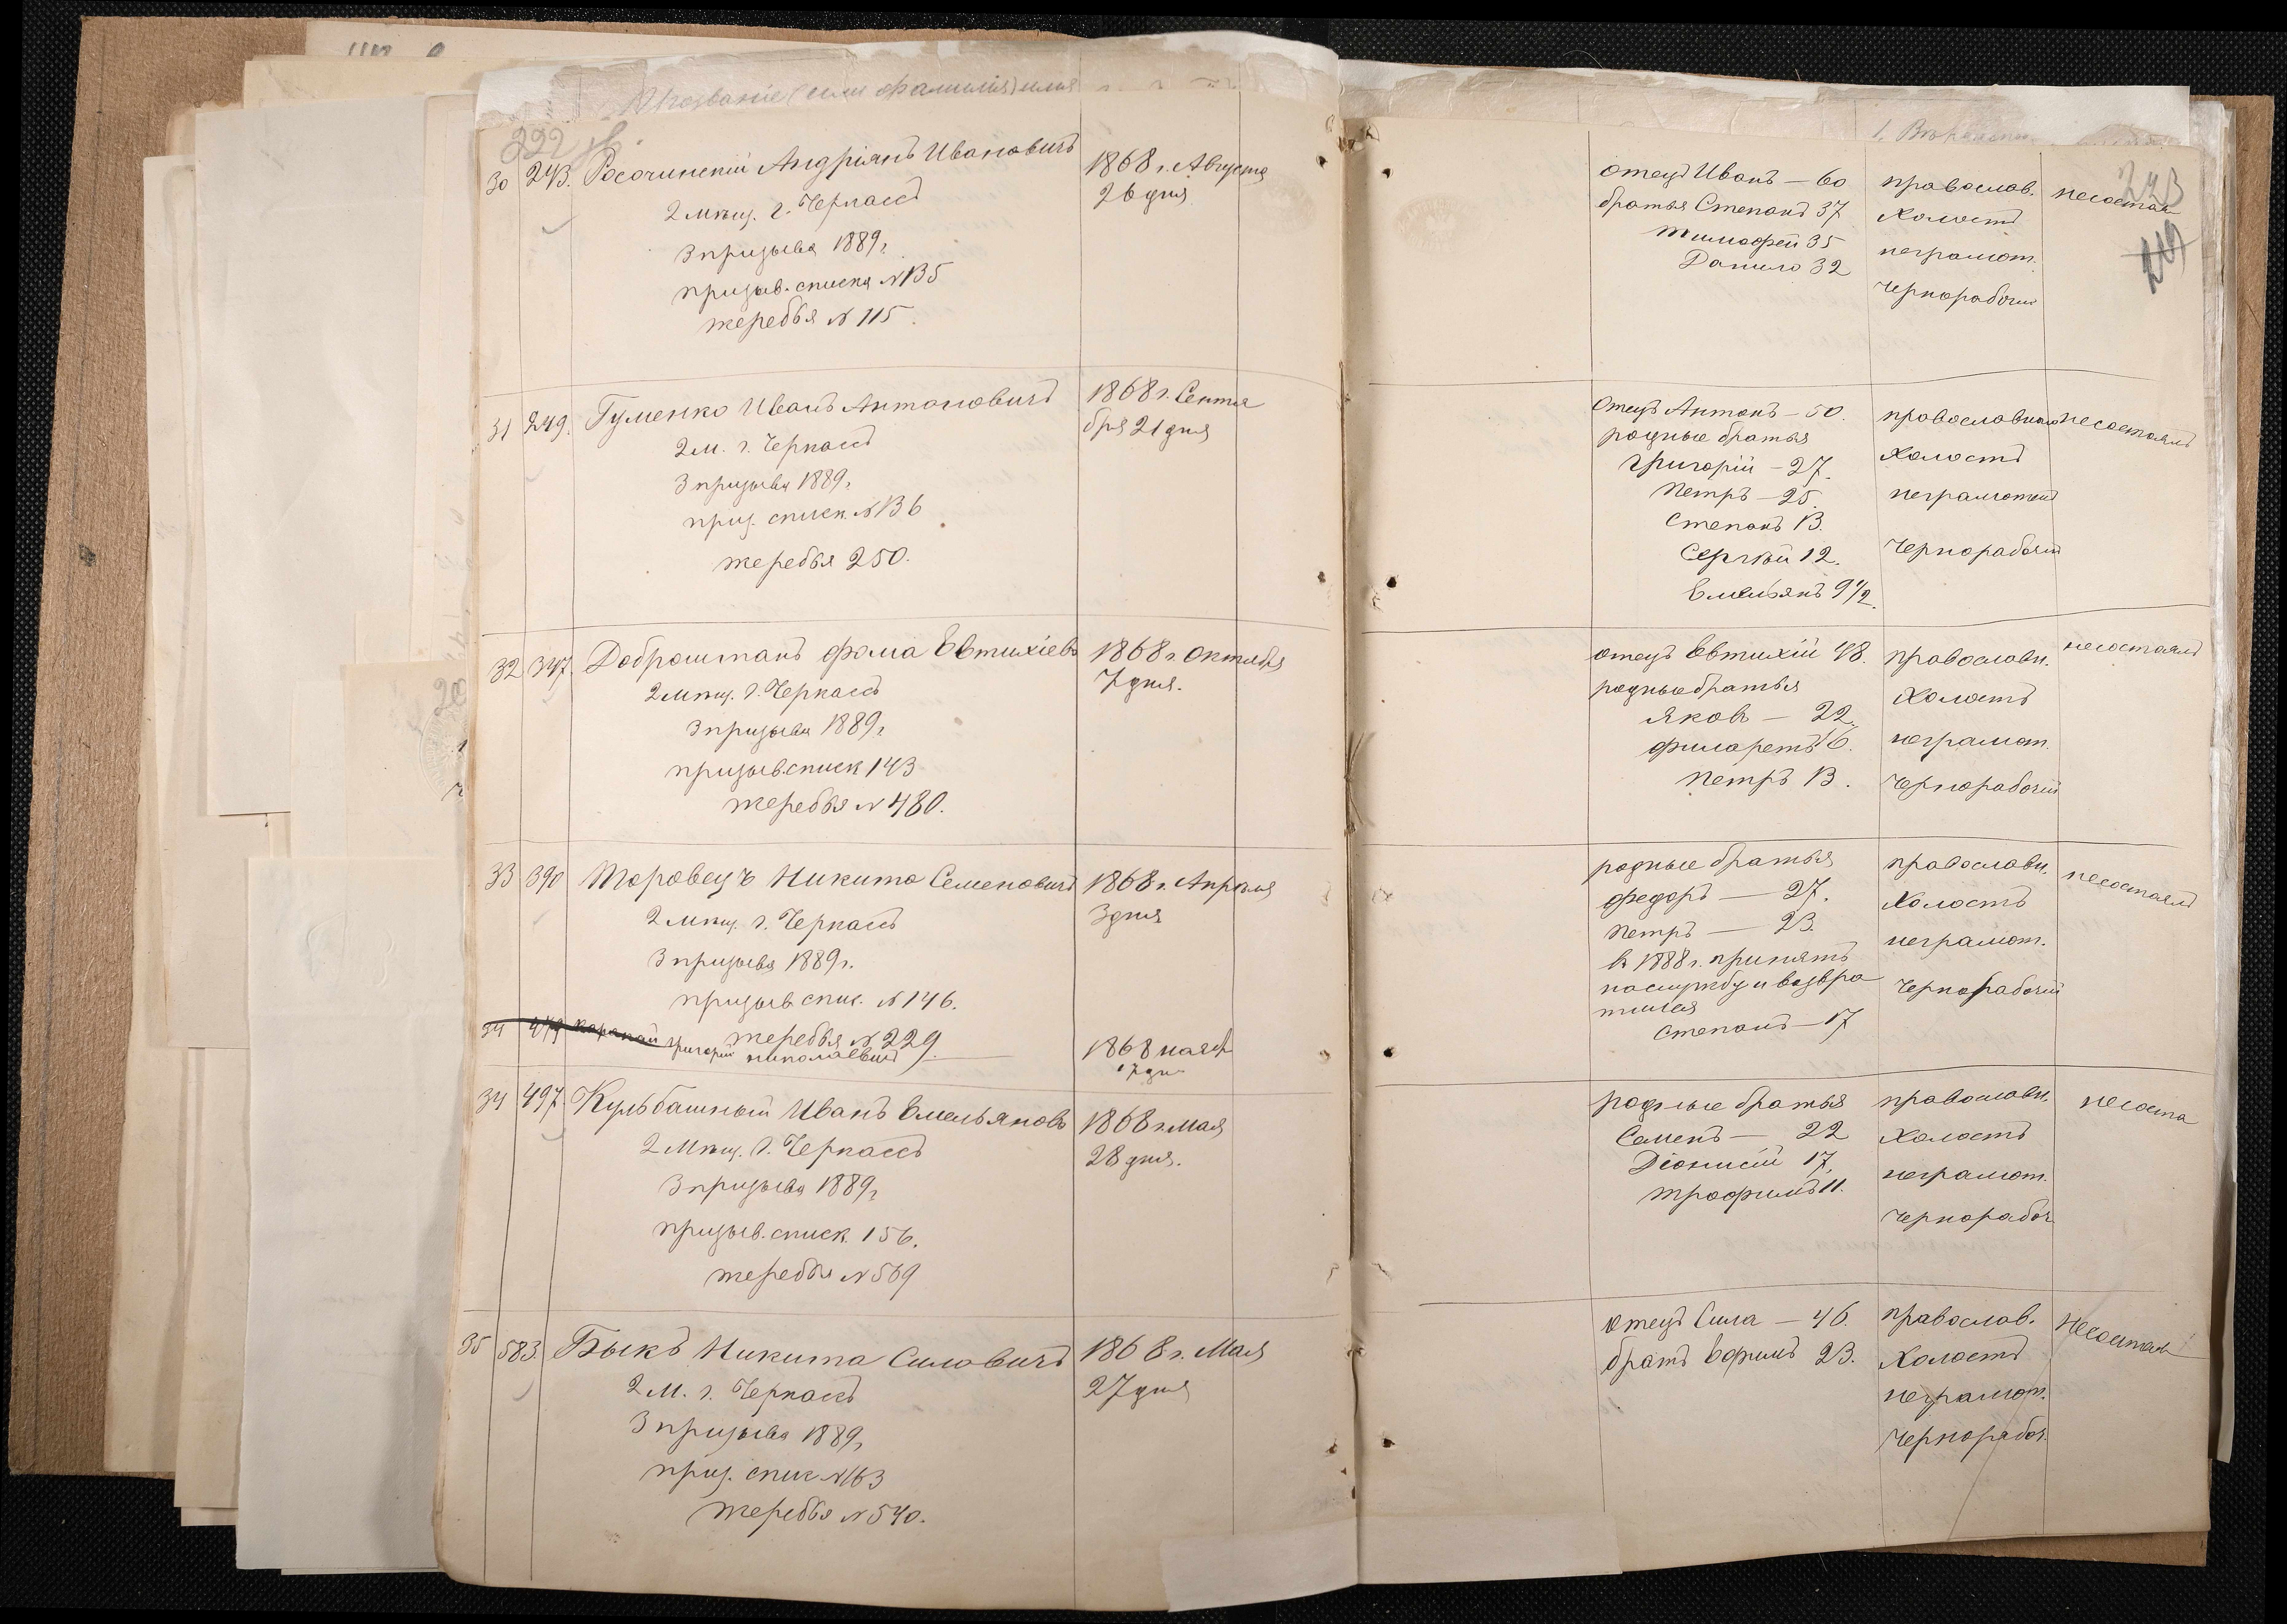 Прозваніе (или фамилія) имя
222
30 243. Росочинскій Андріянъ Ивановичъ 1868 г. Августа
2 мѣщ. г. Черкассъ 26 дня
3 призыва 1889 г.
призыв. списка № 135
жеребья № 115
31 249. Гуменко Иванъ Антоновичъ 1868 г. Сентя
2 м. г. Черкассъ бря 21 дня
3 призыва 1889 г.
приз. списк. № 136
жеребья 250.
32 347. Доброштанъ Фома Евтихіевъ 1868 г. Октября
2 мѣщ. г. Черкассъ 7 дня.
3 призыва 1889 г.
призыв. списк 143
жеребья № 480.
33 390 Моровецъ Никита Семеновичъ 1868 г. Апрѣля
2 мѣщ. г. Черкассъ 3 дня
3 призыва 1889 г.
призыв. спис. № 146.
жеребья № 229.
34 479 Григорій Николаевичъ 1868 мая
34 497. Кульбашный Иванъ Емельяновъ 1868 г. мая
2 Мѣщ. г. Черкассъ 28 дня.
3 призыва 1889 г.
призыв. списк. 156.
жеребья № 569
35 583. Быкъ Никита Силовичъ 1868 г. Мая
2 М. г. Черкассъ 27 дня
3 призыва 1889 г.
приз. спис № 163
жеребья № 540.
223
отецъ Иванъ — 60 православ. несостоял
братья Степанъ 37 Холостъ
Тимофей 35 неграмот.
Данило 32 Чернорабочій
Отецъ Антонъ — 50. православный несостоялъ
родные братья Холостъ
Григорій — 27. неграмотенъ
Петръ — 25.
Степанъ 13. Чернорабочій
Сергѣй 12.
Емельянъ 9 1/2.
отецъ Евтихій 48. православн. несостоялъ
родные братья Холостъ
Яковъ — 22. неграмот.
Филаретъ 16. Чернорабочій
Петръ 13.
родные братья православн. несостоялъ
Федоръ — 27. Холостъ
Петръ — 23. неграмот.
въ 1888 г. принятъ
на службу и возвра Чернорабочій
тился
Степанъ — 17
родные братья православн. несостоя
Семенъ — 22 Холостъ
Діонисій 17. неграмот.
Трофимъ 11. Чернорабоч.
отецъ Сила — 46. православ. несостоял
братъ Ефимъ 23. Холостъ
неграмот.
Чернорабоч.